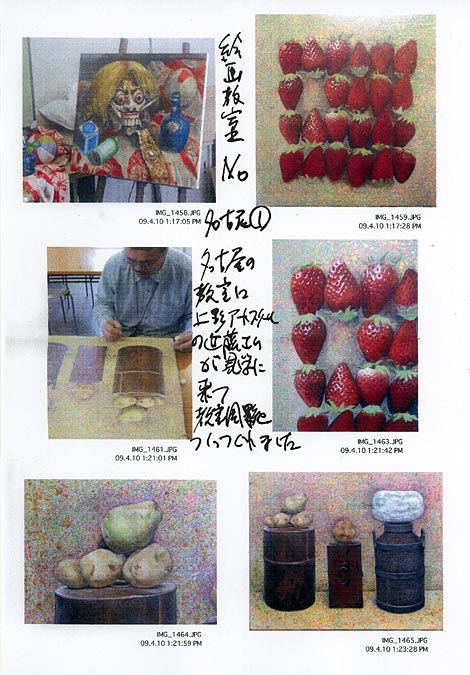 絵画教室 No
名古屋①
IMG_1458.JPG
09.4.10 1:17:05 PM
IMG_1459.JPG
09.4.10 1:17:28 PM
名古屋の
教室に
アートスクール
の近藤さん
が見学に
来て
教室風景を
つくってくれました
IMG_1461.JPG
09.4.10 1:21:01 PM
IMG_1463.JPG
09.4.10 1:21:42 PM
IMG_1464.JPG
09.4.10 1:21:59 PM
IMG_1465.JPG
09.4.10 1:23:28 PM